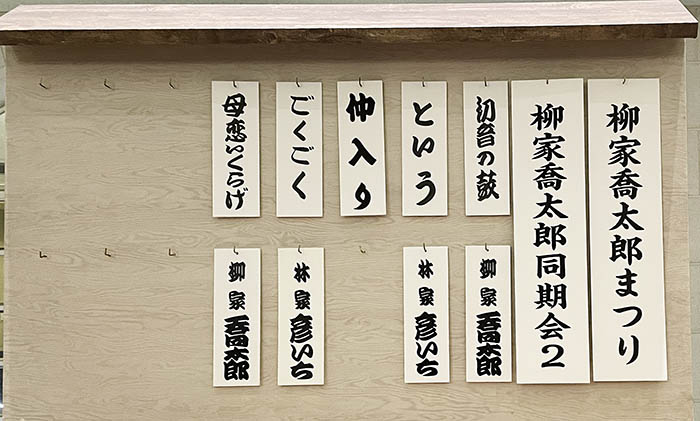 柳家喬太郎まつり
柳家喬太郎同期会2
初音の鼓
柳家喬太郎
という
林家彦いち
仲入り
ごくごく
林家彦いち
母恋いくらげ
柳家喬太郎